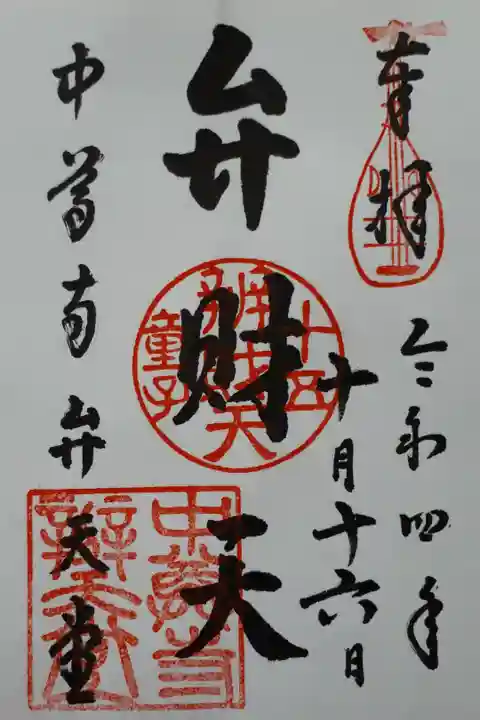 奉拝
令和四年
十月十六日
弁財天
中尊寺弁天堂
十五
辨財天
童子
中尊寺
辨天堂